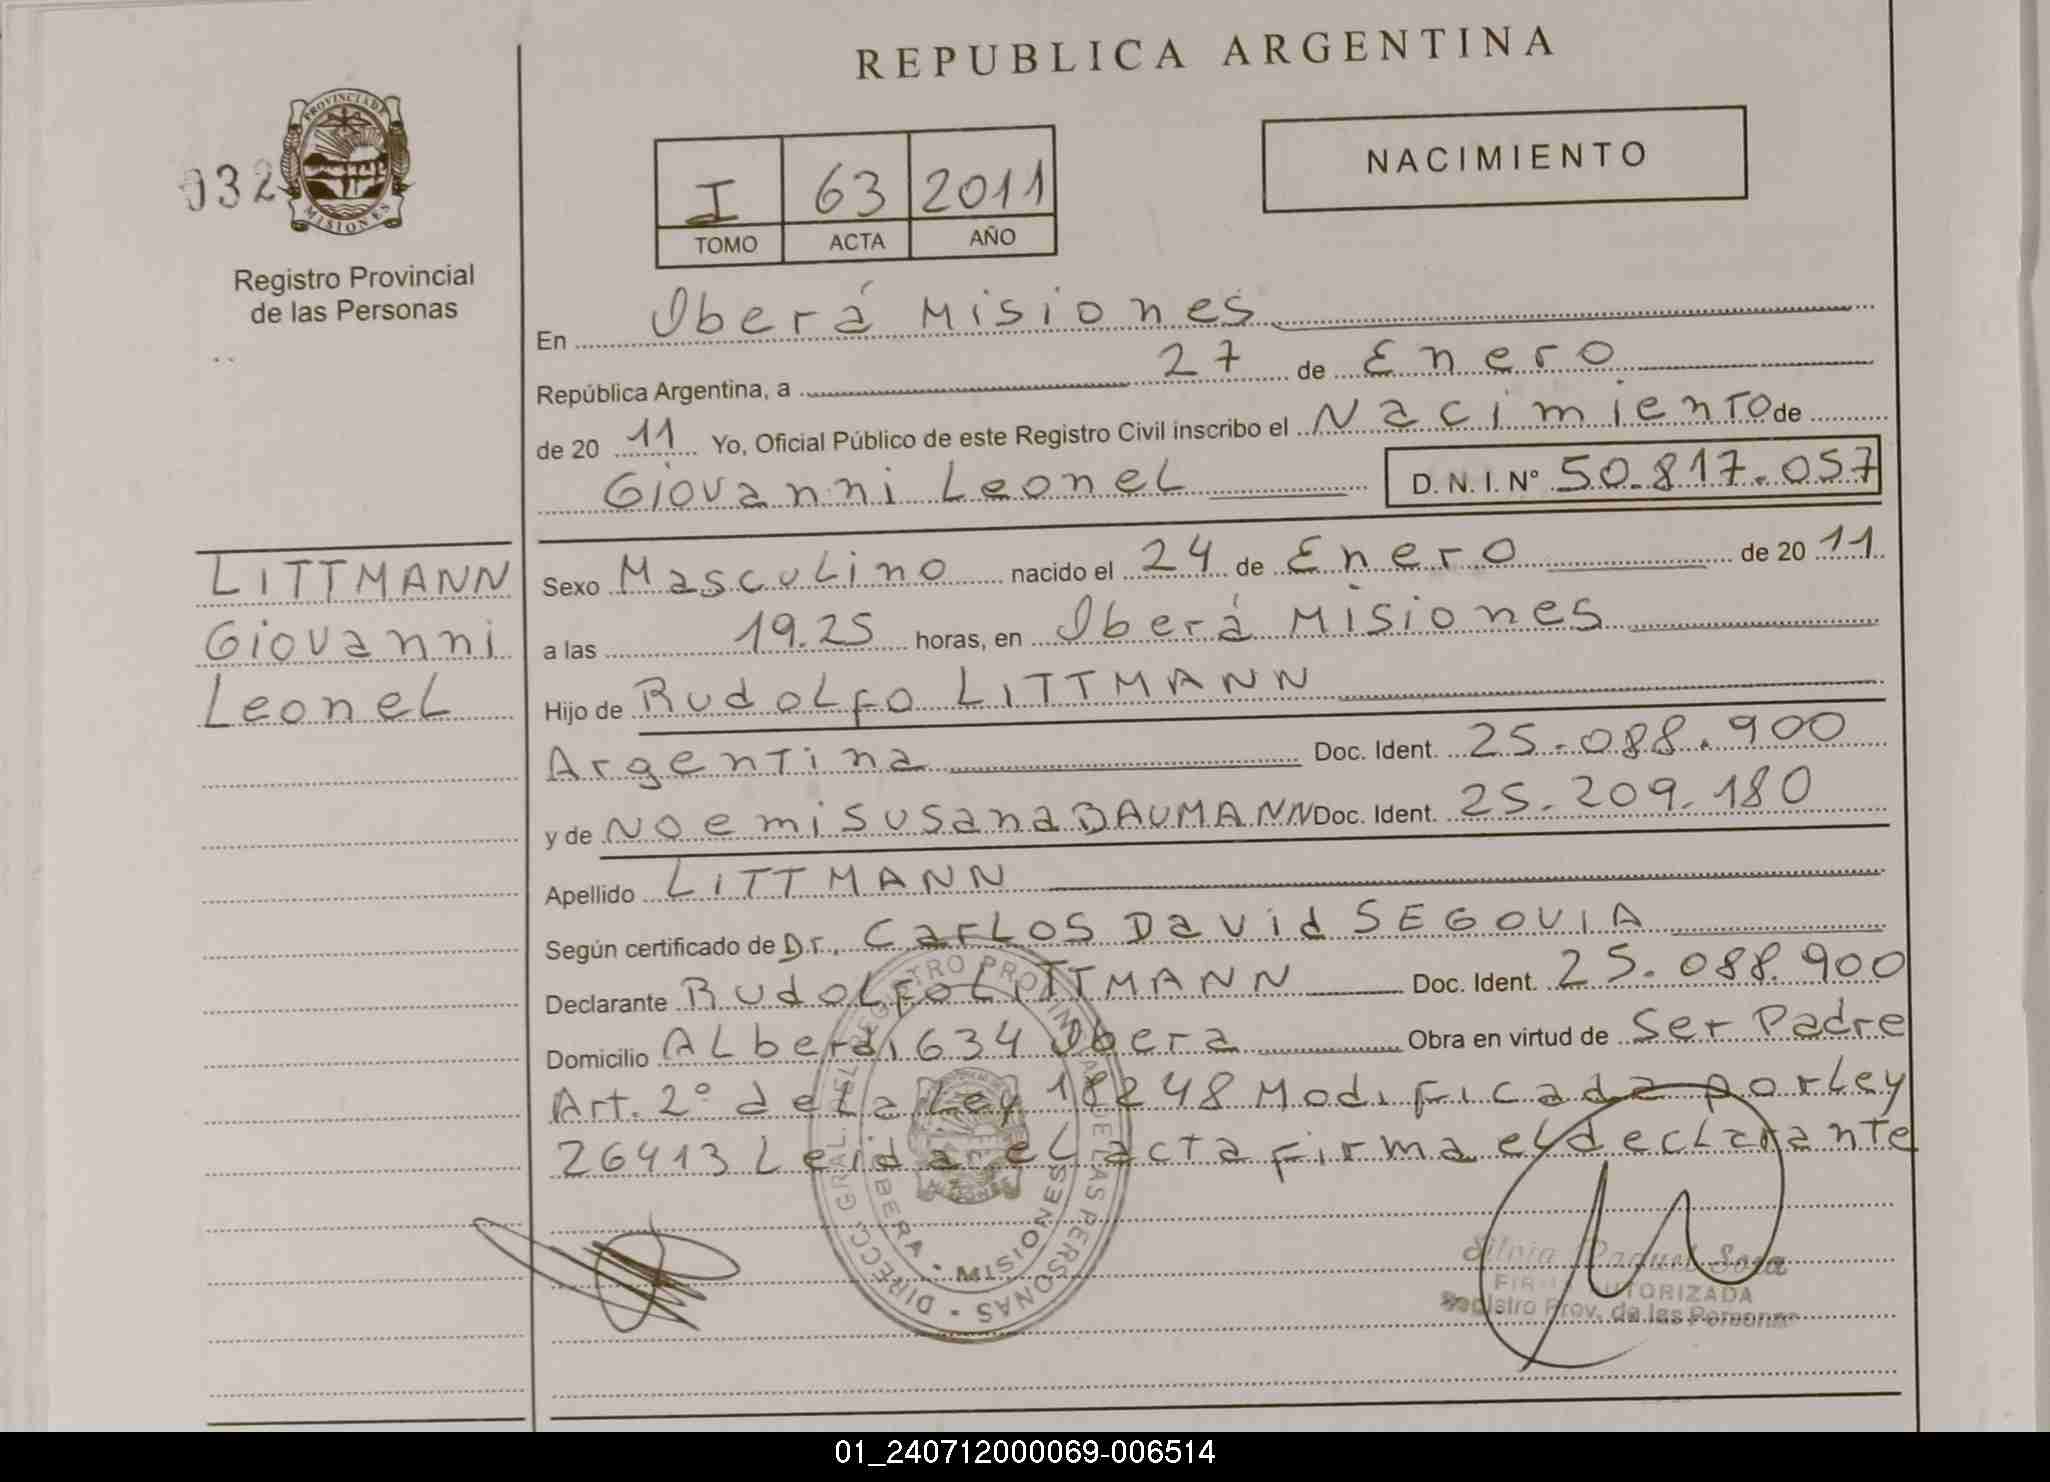 REPUBLICA ARGENTINA
PROVINCIA DE
MISIONES
932
Registro Provincial
de las Personas
I 63 2011
TOMO ACTA AÑO
NACIMIENTO
En Oberá Misiones
República Argentina, a 27 de Enero
de 20 11 Yo, Oficial Público de este Registro Civil inscribo el Nacimiento de
Giovanni Leonel D. N. I. Nº 50.817.057
LITTMANN
Giovanni
Leonel
Sexo Masculino nacido el 24 de Enero de 20 11
a las 19.25 horas, en Oberá Misiones
Hijo de Rudolfo LITTMANN
Argentina Doc. Ident. 25.088.900
y de Noemi Susana BAUMANN Doc. Ident. 25.209.180
Apellido LITTMANN
Según certificado de Dr. Carlos David SEGOVIA
Declarante Rudolfo LITTMANN Doc. Ident. 25.088.900
Domicilio Alberdi 634 Obera Obra en virtud de Ser Padre
Art. 2º de la Ley 18248 Modificada por Ley
26413 Leida el acta firma el declarante
DIRECC. GRAL. DEL REGISTRO PROVINCIAL DE LAS PERSONAS
OBERA - MISIONES
Silvia Raquel Sosa
FIRMA AUTORIZADA
Registro Prov. de las Personas
01_240712000069-006514